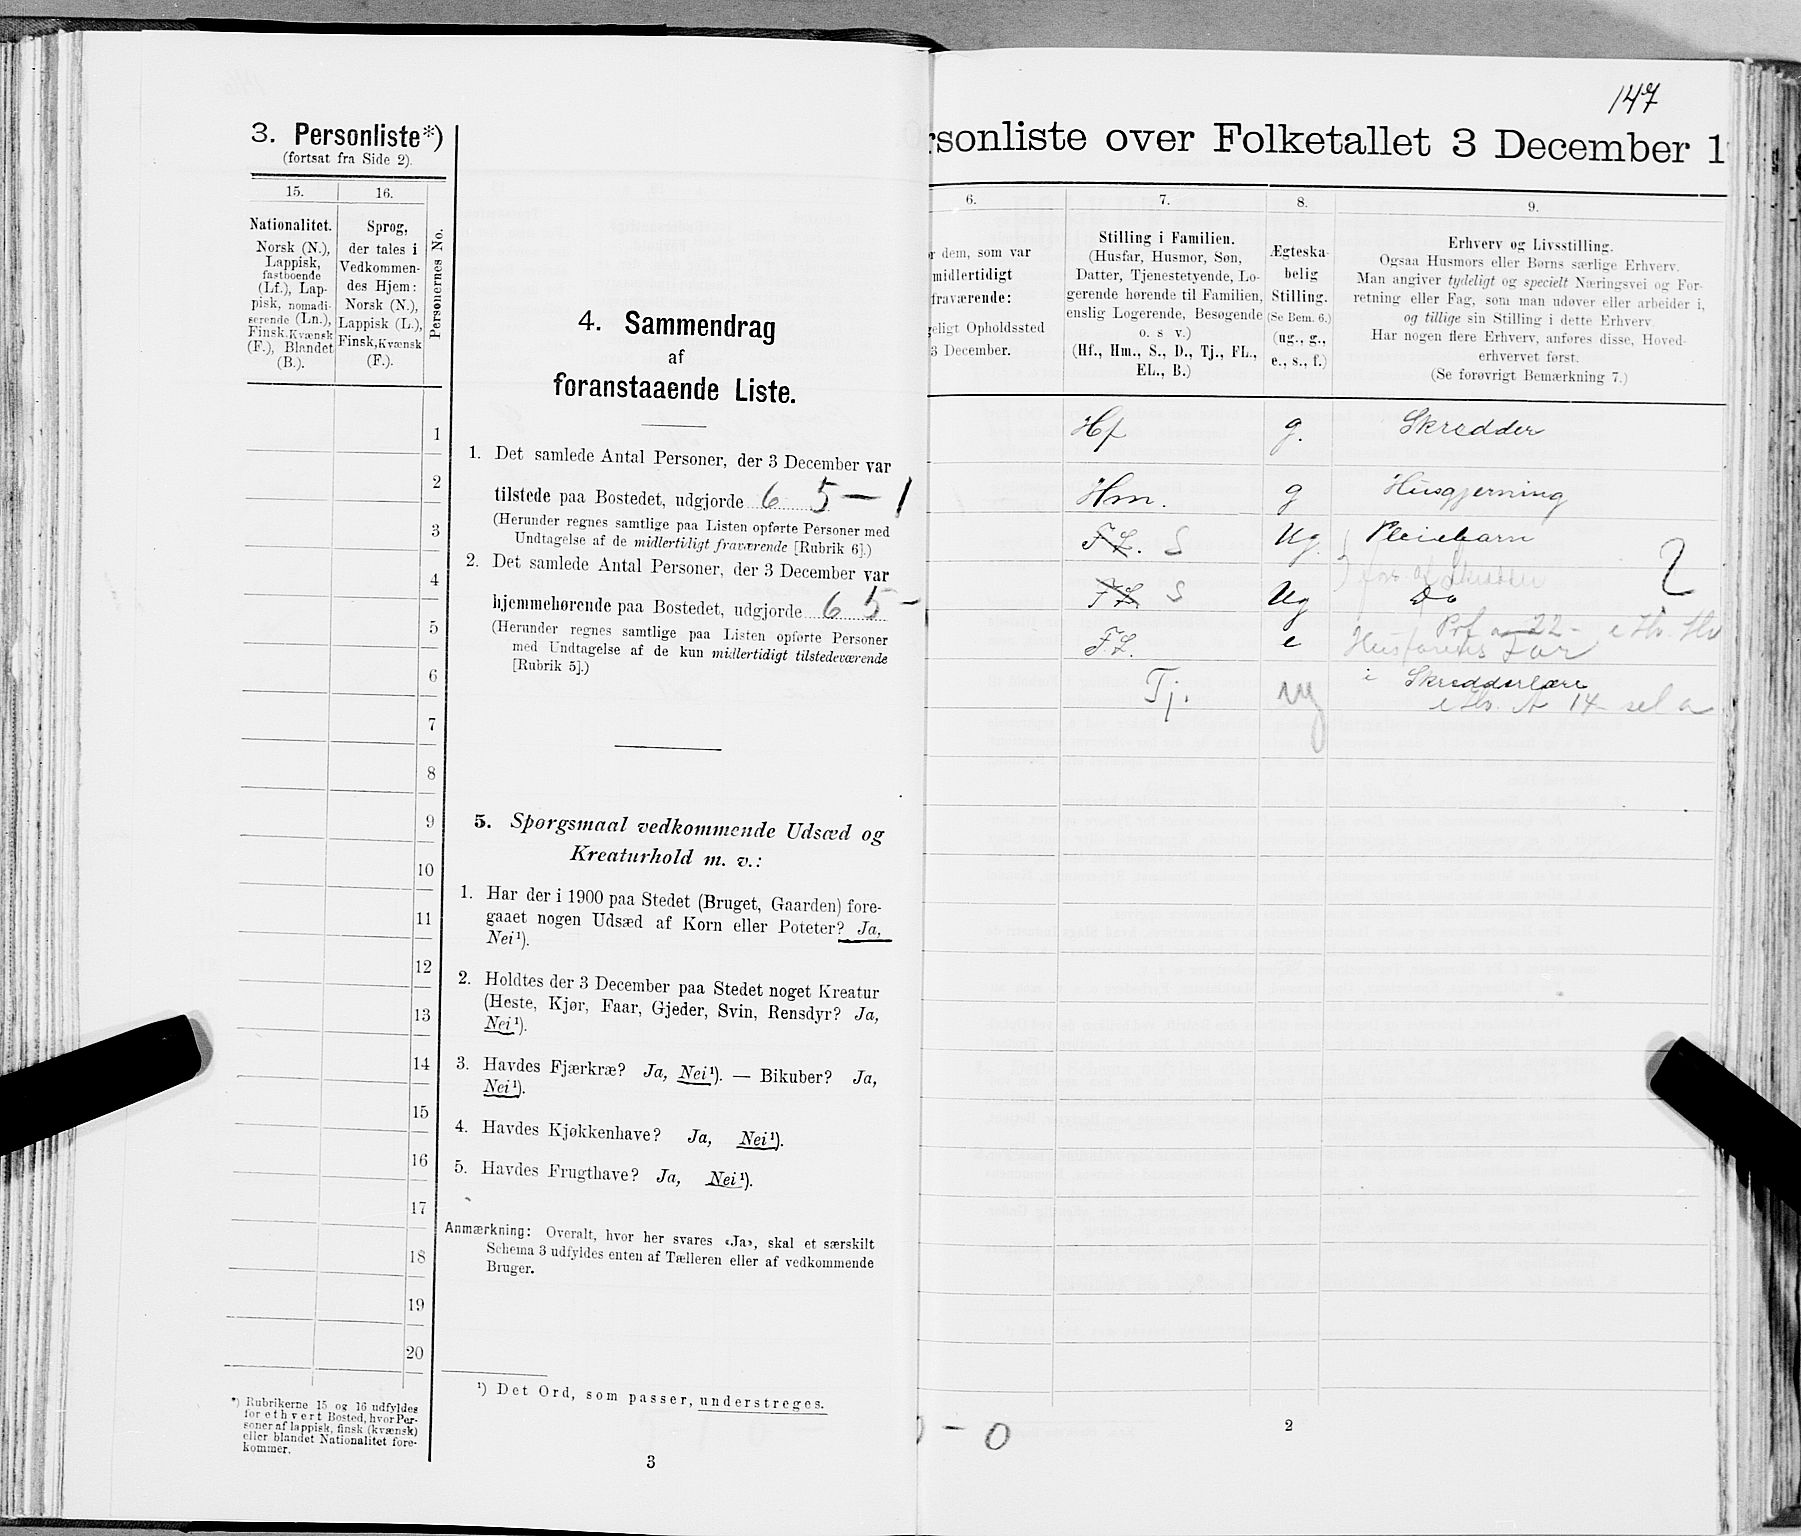 3. Personliste*)
(fortsat fra Side 2).
15.
16.
Nationalitet.
Norsk (N.),
Lappisk,
fastboende
(Lf.), Lap-
pisk, nomadi-
serende (Ln.),
Finsk, Kvænsk
(F.), Blandet
(B.).
Sprog,
der tales i
Vedkommen-
des Hjem:
Norsk (N.),
Lappisk (L.),
Finsk, Kvænsk
(F.).
Personernes No.
1
2
3
4
5
6
7
8
9
10
11
12
13
14
15
16
17
18
19
20
*) Rubrikerne 15 og 16 udfyldes
for ethvert Bosted, hvor Per-
soner af lappisk, finsk (kvænsk)
eller blandet Nationalitet fore-
kommer.
4. Sammendrag
af
foranstaaende Liste.
1. Det samlede Antal Personer, der 3 December var
tilstede paa Bostedet, udgjorde 6 5 — 1
(Herunder regnes samtlige paa Listen opførte Personer med
Undtagelse af de midlertidigt fraværende [Rubrik 6].)
2. Det samlede Antal Personer, der 3 December var
hjemmehørende paa Bostedet, udgjorde 6 5 -
(Herunder regnes samtlige paa Listen opførte Personer
med Undtagelse af de kun midlertidigt tilstedeværende
[Rubrik 5].)
5. Spørgsmaal vedkommende Udsæd og
Kreaturhold m. v.:
1. Har der i 1900 paa Stedet (Bruget, Gaarden) fore-
gaaet nogen Udsæd af Korn eller Poteter? Ja,
Nei¹).
2. Holdtes der 3 December paa Stedet noget Kreatur
(Heste, Kjør, Faar, Gjeder, Svin, Rensdyr? Ja,
Nei¹).
3. Havdes Fjærkræ? Ja, Nei¹). — Bikuber? Ja,
Nei¹).
4. Havdes Kjøkkenhave? Ja, Nei¹).
5. Havdes Frugthave? Ja, Nei¹).
Anmærkning: Overalt, hvor her svares «Ja», skal et særskilt
Schema 3 udfyldes enten af Tælleren eller af vedkommende
Bruger.
¹) Det Ord, som passer, understreges.
3
147
rsonliste over Folketallet 3 December 1
6.
7.
8.
9.
r dem, som var
midlertidigt
fraværende:
geligt Opholdssted
3 December.
Stilling i Familien.
(Husfar, Husmor, Søn,
Datter, Tjenestetyende, Lo-
gerende hørende til Familien,
enslig Logerende, Besøgende
o. s v.)
(Hf., Hm., S., D., Tj., FL.,
EL., B.)
Ægteska-
belig
Stilling.
(Se Bem. 6.)
(ug., g.,
e., s., f.)
Erhverv og Livsstilling.
Ogsaa Husmors eller Børns særlige Erhverv.
Man angiver tydeligt og specielt Næringsvei og For-
retning eller Fag, som man udøver eller arbeider i,
og tillige sin Stilling i dette Erhverv
Har nogen flere Erhverv, anføres disse, Hoved-
erhvervet først.
(Se forøvrigt Bemærkning 7.)
Hf g. Skredder
Hm. g Husgjerning
F.L. S Ug. Pleiebarn
2
F.L. S Ug Do
F.L. e Husfarens Far
Tj. ug i Skredderlære
0 - 0
2